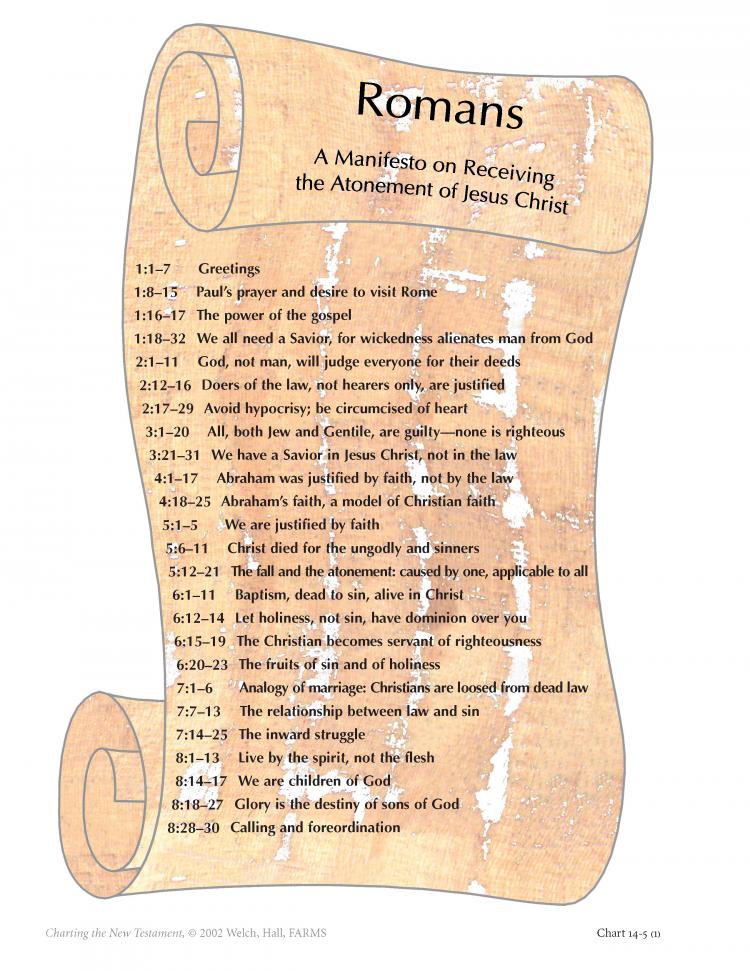 Romans
A Manifesto on Receiving
the Atonement of Jesus Christ
1:1–7 Greetings
1:8–15 Paul’s prayer and desire to visit Rome
1:16–17 The power of the gospel
1:18–32 We all need a Savior, for wickedness alienates man from God
2:1–11 God, not man, will judge everyone for their deeds
2:12–16 Doers of the law, not hearers only, are justified
2:17–29 Avoid hypocrisy; be circumcised of heart
3:1–20 All, both Jew and Gentile, are guilty—none is righteous
3:21–31 We have a Savior in Jesus Christ, not in the law
4:1–17 Abraham was justified by faith, not by the law
4:18–25 Abraham’s faith, a model of Christian faith
5:1–5 We are justified by faith
5:6–11 Christ died for the ungodly and sinners
5:12–21 The fall and the atonement: caused by one, applicable to all
6:1–11 Baptism, dead to sin, alive in Christ
6:12–14 Let holiness, not sin, have dominion over you
6:15–19 The Christian becomes servant of righteousness
6:20–23 The fruits of sin and of holiness
7:1–6 Analogy of marriage: Christians are loosed from dead law
7:7–13 The relationship between law and sin
7:14–25 The inward struggle
8:1–13 Live by the spirit, not the flesh
8:14–17 We are children of God
8:18–27 Glory is the destiny of sons of God
8:28–30 Calling and foreordination
Charting the New Testament, © 2002 Welch, Hall, FARMS
Chart 14-5 (1)